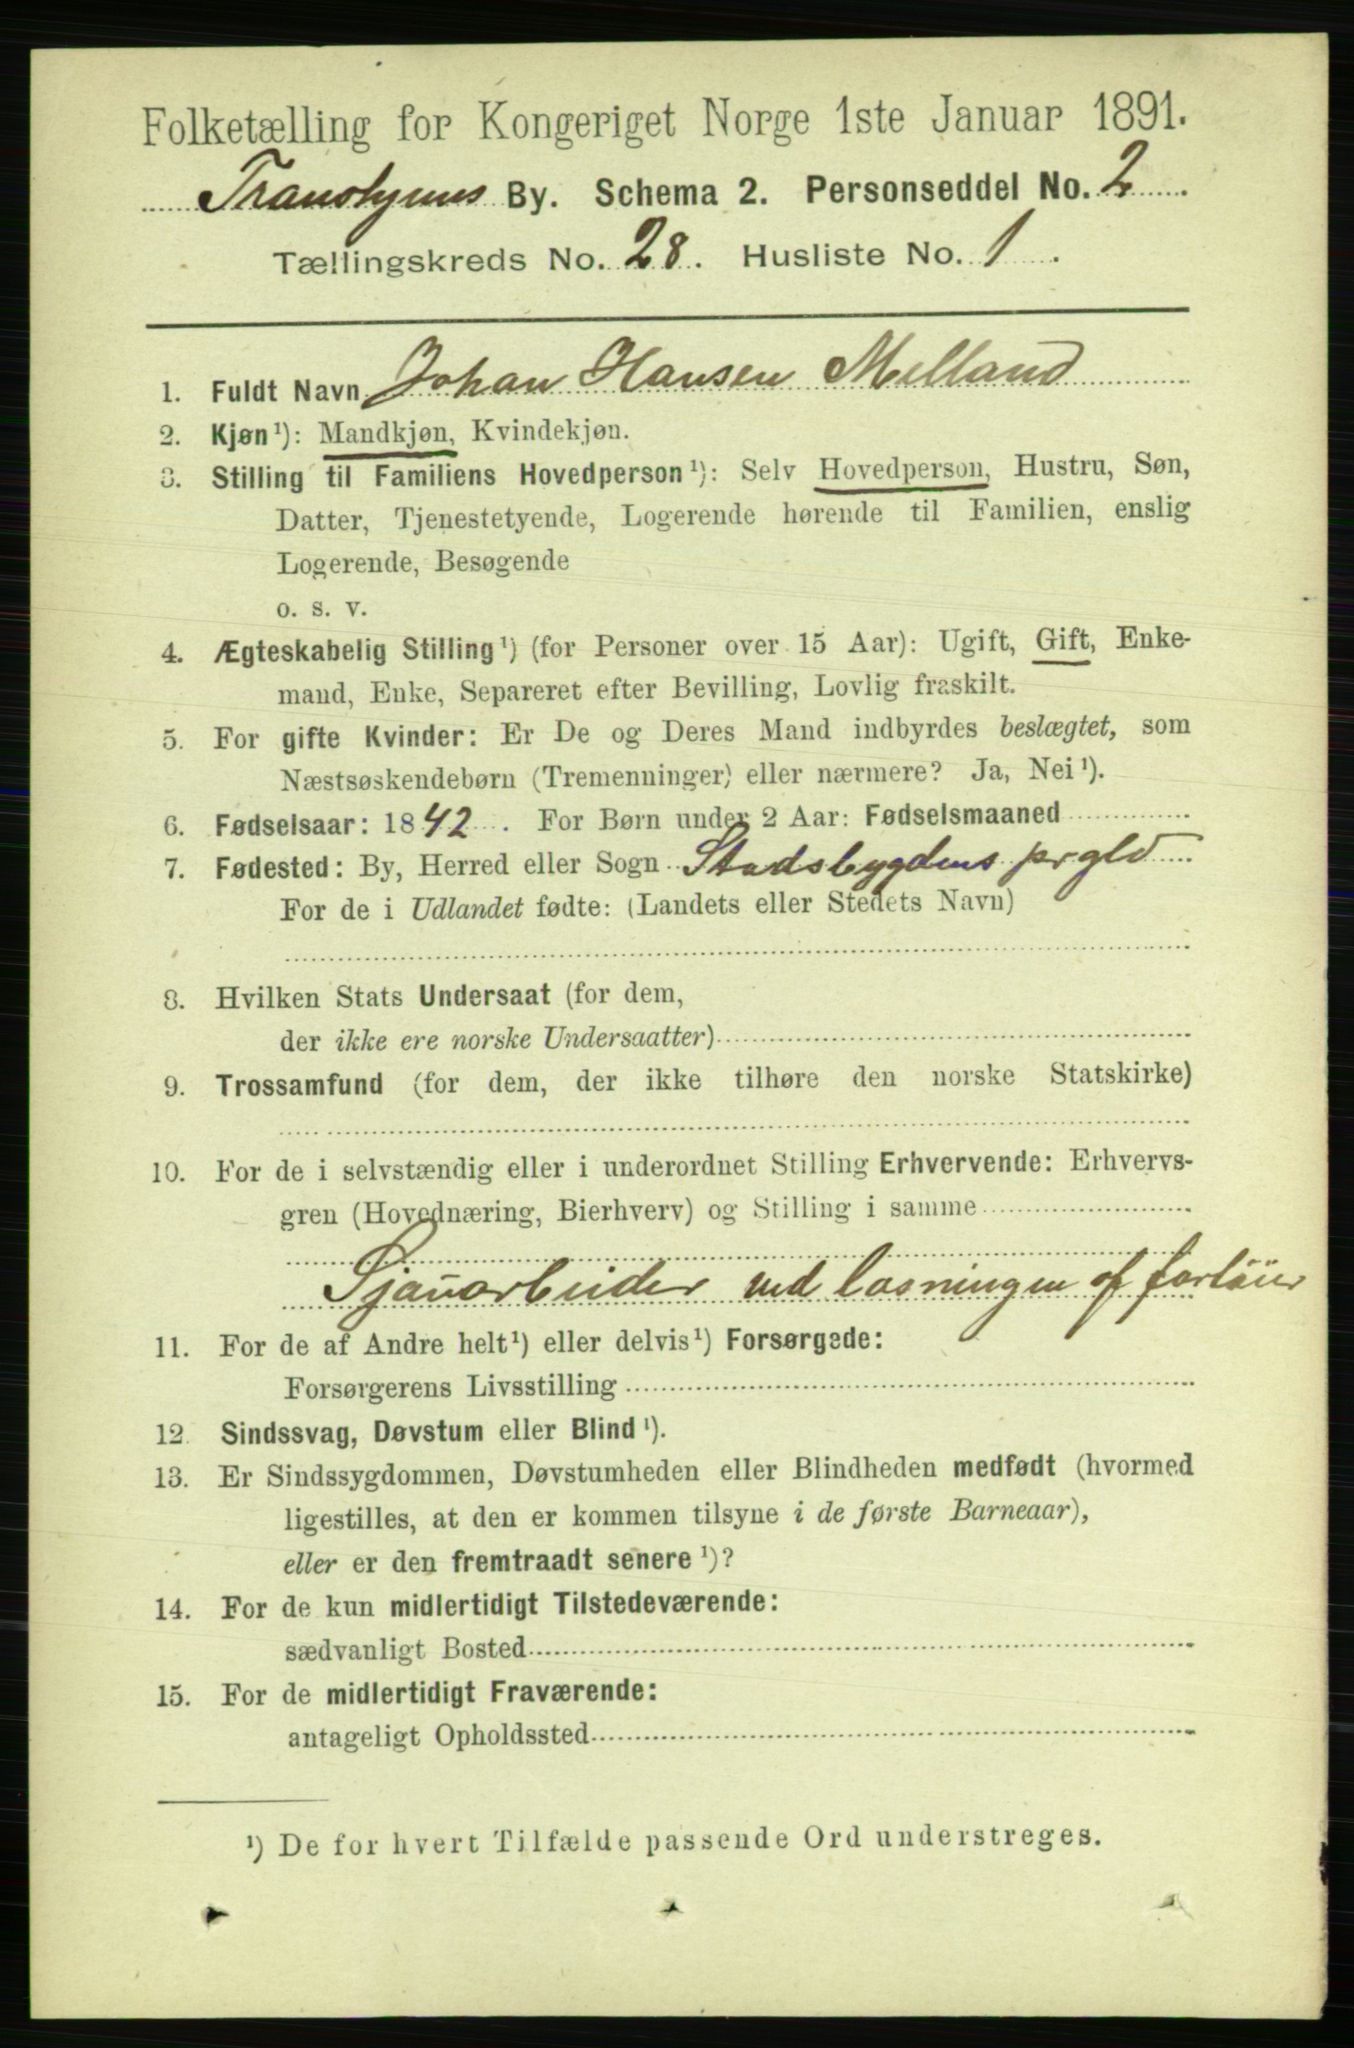 Folketælling for Kongeriget Norge 1ste Januar 1891.
By. Schema 2. Personseddel No. 2
Tællingskreds No. 28. Husliste No. 1.
1. Fuldt Navn Johan Hansen Melland
2. Kjøn¹): Mandkjøn, Kvindekjøn.
3. Stilling til Familiens Hovedperson¹): Selv Hovedperson, Hustru, Søn,
Datter, Tjenestetyende, Logerende hørende til Familien, enslig
Logerende, Besøgende
o. s. v.
4. Ægteskabelig Stilling¹) (for Personer over 15 Aar): Ugift, Gift, Enke-
mand, Enke, Separeret efter Bevilling, Lovlig fraskilt.
5. For gifte Kvinder: Er De og Deres Mand indbyrdes beslægtet, som
Næstsøskendebørn (Tremenninger) eller nærmere? Ja, Nei¹).
6. Fødselsaar: 1842. For Børn under 2 Aar: Fødselsmaaned
7. Fødested: By, Herred eller Sogn Stadsbygdens prgld
For de i Udlandet fødte: (Landets eller Stedets Navn)
8. Hvilken Stats Undersaat (for dem,
der ikke ere norske Undersaatter)
9. Trossamfund (for dem, der ikke tilhøre den norske Statskirke)
10. For de i selvstændig eller i underordnet Stilling Erhvervende: Erhvervs-
gren (Hovednæring, Bierhverv) og Stilling i samme
Sjauarbeider ved losningen af
11. For de af Andre helt¹) eller delvis¹) Forsørgede:
Forsørgerens Livsstilling
12. Sindssvag, Døvstum eller Blind¹).
13. Er Sindssygdommen, Døvstumheden eller Blindheden medfødt (hvormed
ligestilles, at den er kommen tilsyne i de første Barneaar),
eller er den fremtraadt senere¹)?
14. For de kun midlertidigt Tilstedeværende:
sædvanligt Bosted
15. For de midlertidigt Fraværende:
antageligt Opholdssted
¹) De for hvert Tilfælde passende Ord understreges.